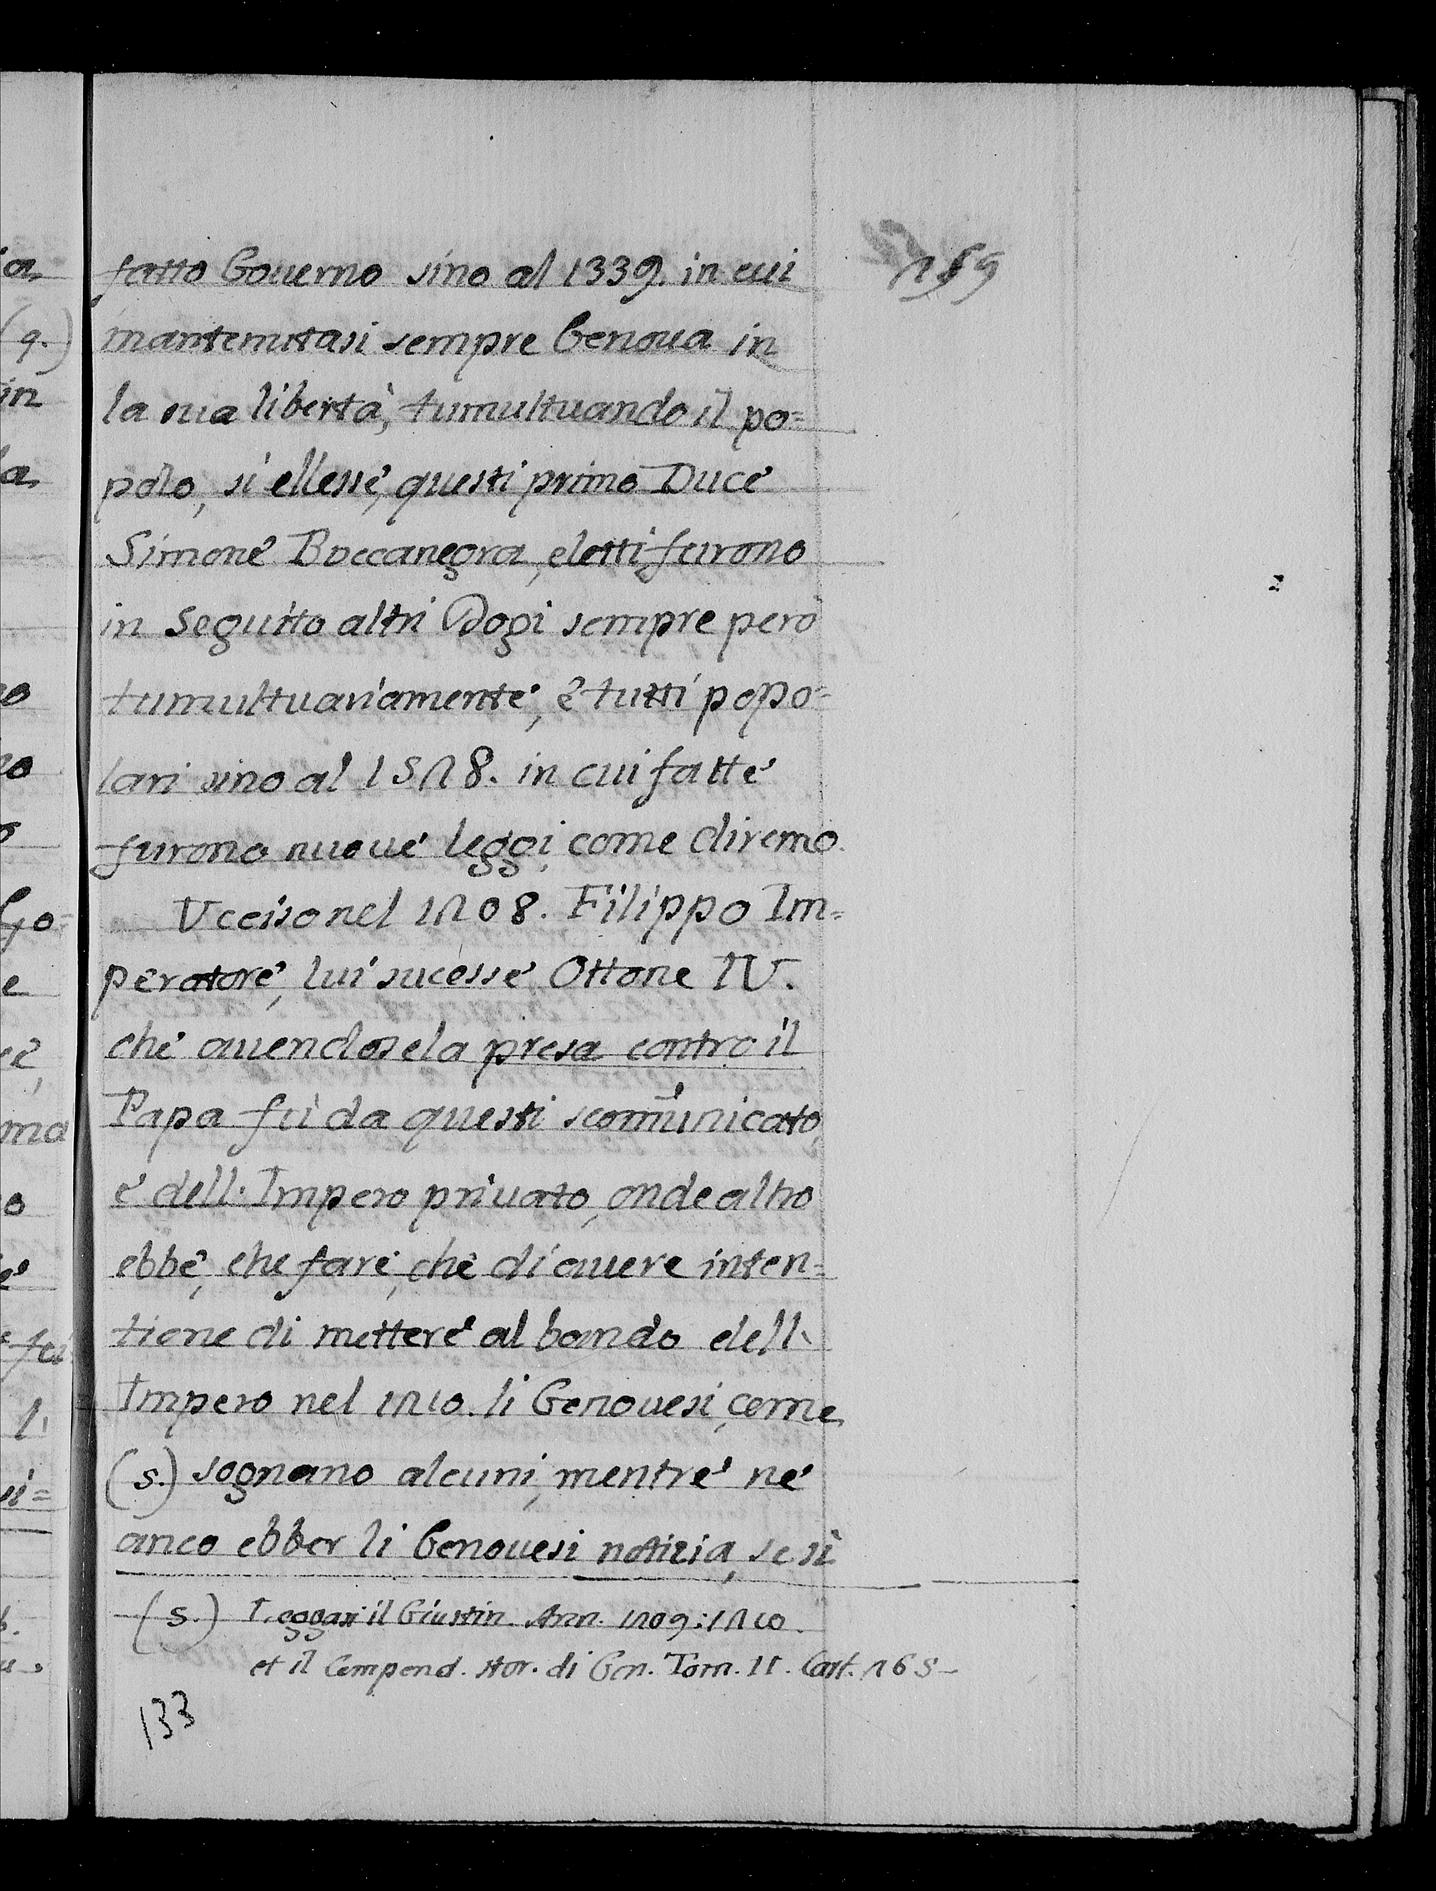 259
fatto Gouerno sino al 1339. in cui
mantenutasi sempre Genoua in
la sua libertà, tumultuando il po=
polo, si ellesse, questi primo Duce
Simone Boccanegra, eletti furono
in seguito altri Dogi sempre però
tumultuariamente, è tutti popo=
lari sino al 1528. in cui fatte
furono nuoue leggi, come diremo.
Ucciso nel 1208. Filippo Im=
peratore, lui sucesse Ottone IV.
che auendosela presa contro il
Papa fù da questi scomunicato,
è dell' Impero priuato, onde altro
ebbe, che fare, che di auere inten=
tione di mettere al bando dell'
Impero nel 1210. li Genouesi, come
(s.) sognano alcuni, mentre ne
anco ebber li Genouesi notizia, se si
(s.) Leggasi il Giustin. Ann. 1209:1210.
et il Compend. stor. di Gen. Tom. II. Cart. 265
133